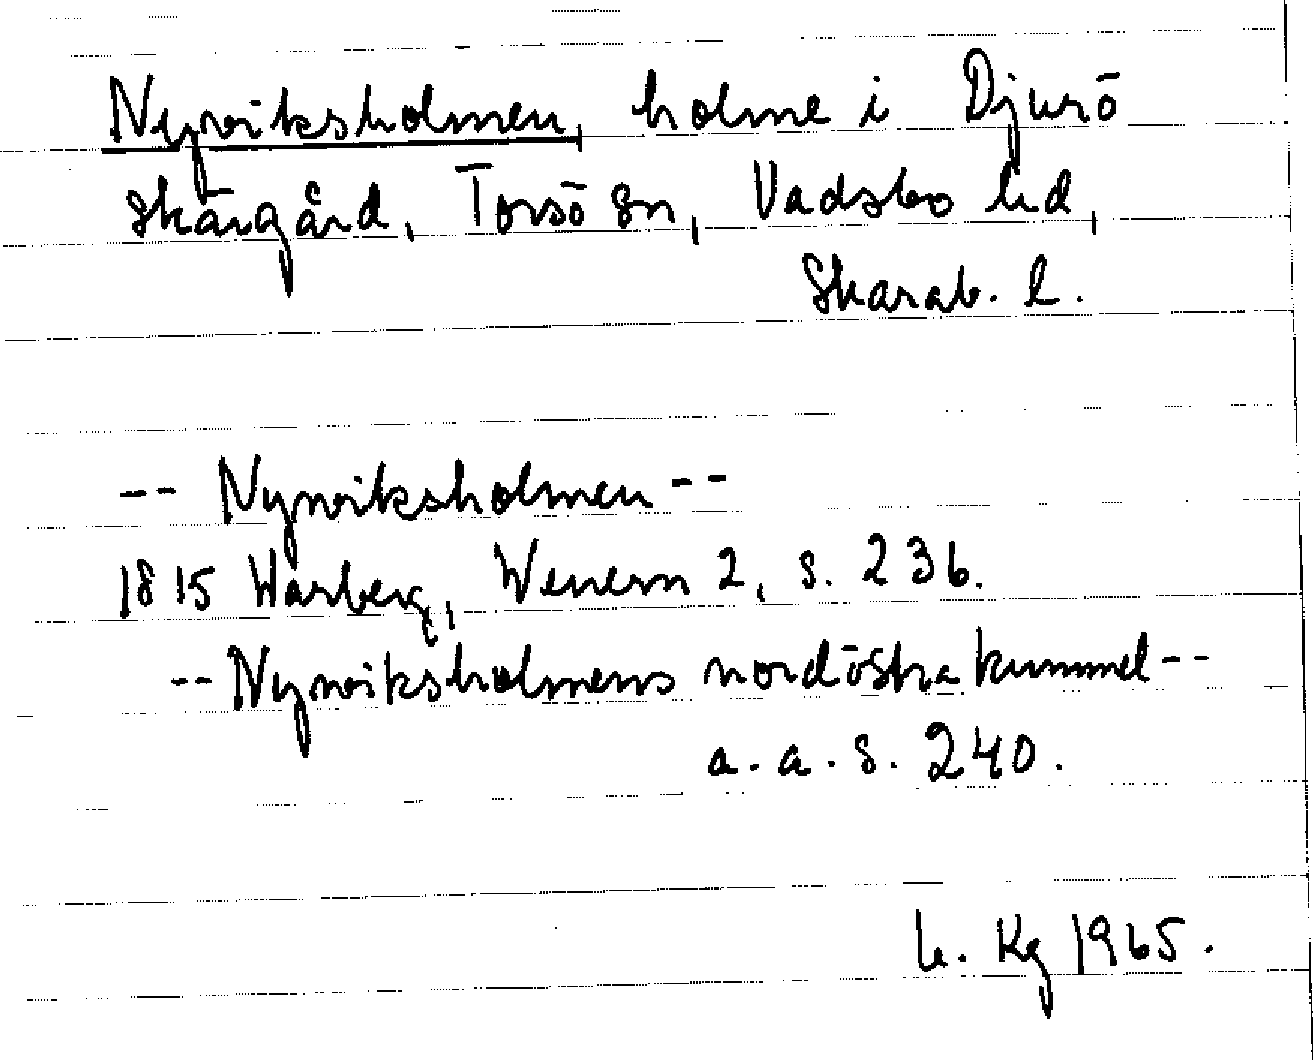 Nyviksholmen, holme i Djurö
skärgård, Torsö sn, Vadsbo hd,
Skarab. l.
-- Nyviksholmen --
1815 Warberg, Wenern 2, s. 236.
-- Nyviksholmens nordöstra kummel --
a. a. s. 240.
Kg 1965.